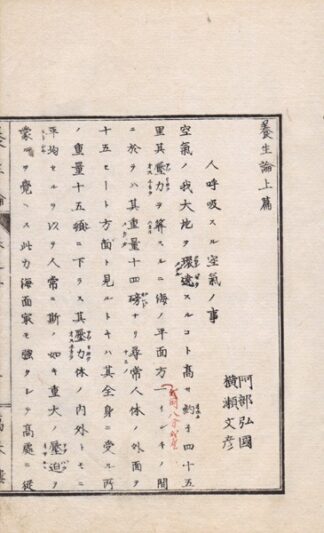 養生論上篇
阿部弘國
橫瀬文彦
人呼吸スル空氣ノ事
空氣ノ我大地ヲ環遶スルコト高サ約ソ四十五
里其壓力ヲ算スルニ海ノ平面方一インチノ間
ニ於テハ其重量十四磅ナリ尋常人体ノ外面ヲ
十五セート方面ト見ルトキハ其全身ニ受ル所
ノ重量十五頓ニ下ラス其壓力体ノ内外トモニ
平均セルヲ以テ人常ニ斯ノ如キ重大ノ壓迫ヲ
蒙ルヲ覺ヘス此力海面最モ強クシテ高處ニ従